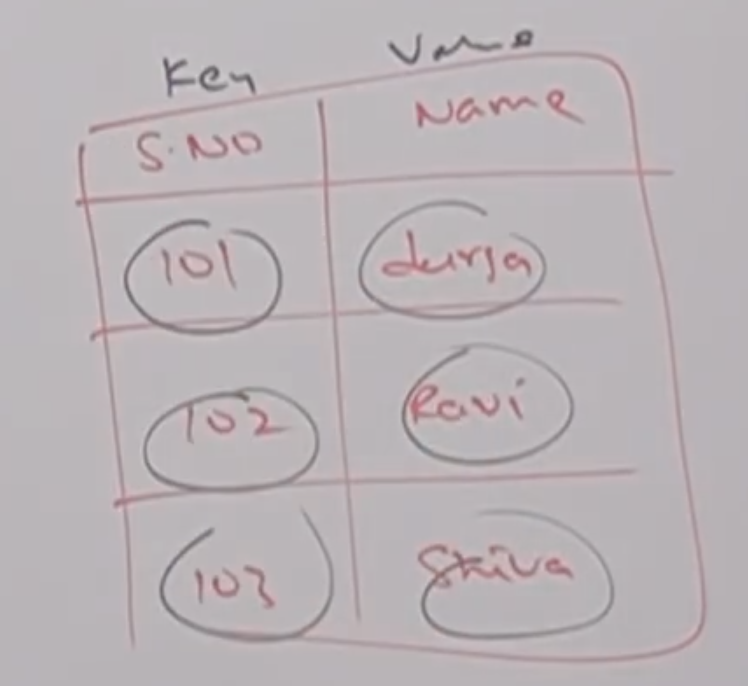 Key Value
S.NO Name
101 durga
102 Ravi
103 Shiva